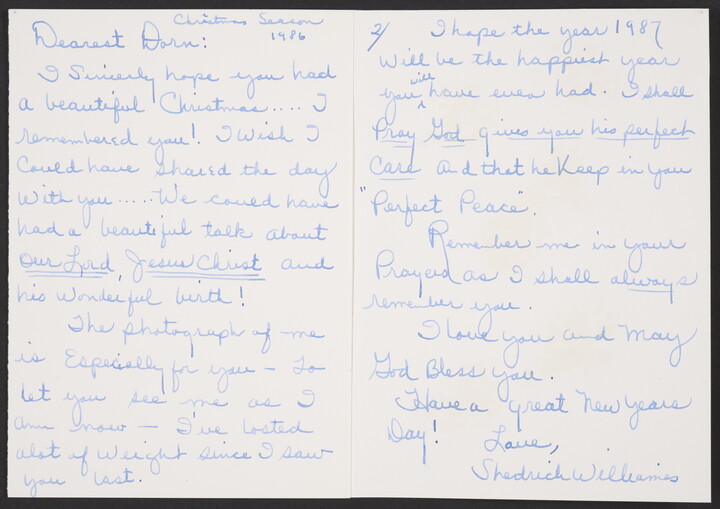 Christmas Season
1986
Dearest Dorn:
I Sincerly hope you had
a beautiful Christmas..... I
remembered you! I Wish I
Could have shared the day
With you..... We could have
had a beautiful talk about
Our Lord, Jesus Christ and
his Wonderful birth!
The photograph of me
is Especially for you - to
let you see me as I
am now - I've losted
alot of weight since I saw
you last.
2/ I hope the year 1987
Will be the happiest year
you will have ever had. I shall
Pray God gives you his perfect
Care And that he Keep in you
"Perfect Peace".
Remember me in your
Prayers as I shall always
remember you.
I love you and May
God Bless you.
Have a great New Years
Day!
Love,
Shedrich Williames